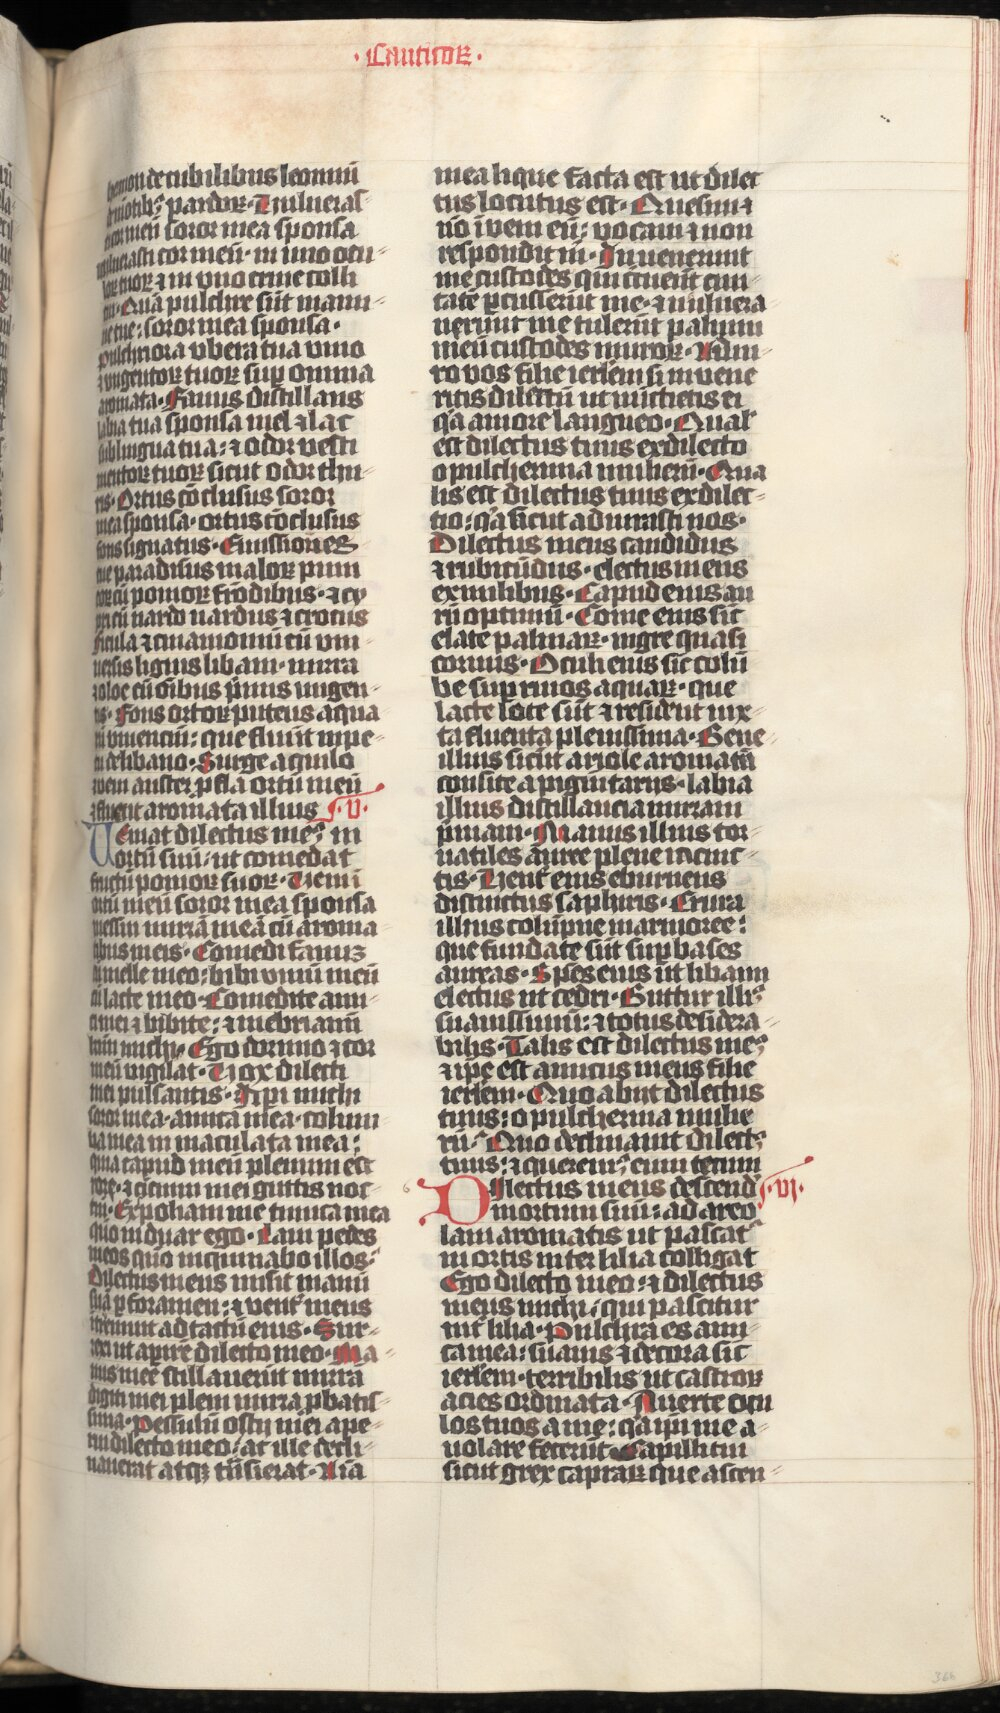 · Canticor ·
hermon de cubilibus leonum
de mōtibꝫ pardoꝝ · Uulneras⸗
ti cor meū soror mea sponsa
uulnerasti cor meū · in uno ocu⸗
loꝝ tuoꝝ ⁊ in vno crine colli
tui · Quā pulchre sūt mam⸗
me tue : soror mea sponsa ·
pulchriora vbera tua vino
⁊ vngentoꝝ tuoꝝ sup omnia
aromata · Fauus distillans
labia tua sponsa mel ⁊ lac
sub lingua tua : ⁊ odor vesti
mentoꝝ tuoꝝ sicut odor thu⸗
ris · Ortus cōclusus soror
mea sponsa · ortus cōclusus
fons signatus · Emissiones
tue paradisus maloꝝ puni
coꝝ cū pomoꝝ frōdibus · ⁊ cy
pri cū nardo nardus ⁊ crocus
fistula ⁊ cinamomū cū vni⸗
uersis lignis libani · mirra
⁊ aloe cū oībus pmis vngen⸗
tis · Fons ortoꝝ puteus aqua
rū viuenciū : que fluūt impe⸗
tu de libano · Surge aquilo
⁊ veni auster pfla ortū meū
⁊ fluent aromata illius · V ·
Ueniat dilectus meꝰ in
ortū suū : ut comedat
fructū pomoꝝ suoꝝ · Ueni ī
ortū meū soror mea sponsa
messui mirrā meā cū aroma
tibus meis · Comedi fauuꝫ
cū melle meo : bibi vinū meū
cū lacte meo · Comedite ami⸗
ci mei ⁊ bibite : ⁊ inebriami
karissimi · Ego dormio ⁊ cor
meū uigilat · Uox dilecti
mei pulsantis · Aperi michi
soror mea · amica mea · colum⸗
ba mea inmaculata mea :
quia capud meū plenum est
rore · ⁊ cicinni mei guttis noc⸗
tiū · Expoliaui me tunica mea
quō induar ego · Laui pedes
meos quō inquinabo illos ·
Dilectus meus misit manū
suā p foramen : ⁊ vent meus
intremuit ad tactū eius · Sur⸗
rexi ut apire dilecto meo · Ma⸗
nus mee stillauerūt mirrā
digiti mei pleni mirra pbatis⸗
sima · Pessulū ostij mei ape⸗
rui dilecto meo : at ille decli⸗
nauerat atqꝫ trāsierat · Aīa
mea liquefacta est ut dilec
tus locutus est · Quesiui ⁊
nō īueni eū : vocaui ⁊ non
respondit m · Inuenerunt
me custodes qui circueūt ciui
tatē pcusserūt me · ⁊ uulnera
uerunt me tulerūt pallium
meū custodes muroꝝ · Adiu⸗
ro vos filie ierlem si inuene
ritis dilectū ut nūctietis ei
qa amore langueo · Qual
est dilectus tuus ex dilecto
o pulcherima mulierū · Qua
lis est dilectus tuus ex dilec⸗
to : qa sicut adiurasti nos ·
Dilectus meus candidus
⁊ rubicūdus · electus meus
ex milibus · Capud eius au
rū optimū · Come eius sic̄
elate palmaꝝ · nigre quasi
coruus · Oculi eius sic̄ colū
be sup riuos aquaꝝ · que
lacte lote sūt ⁊ resident iux⸗
ta fluenta plenissima · Gene
illius sicut ariole aromatū
consite a pigmtarijs · labia
illius distillancia mirram
pmam · Manus illius tor⸗
natiles auree plene iacinc⸗
tis · Uent eius eburneus
distinctus saphiris · Crura
illius colūpne marmoree :
que fundate sūt sup bases
aureas · Spēs eius ut libani
electus ut cedri · Guttur illiꝰ
suauissimū : ⁊ totus desidera⸗
bilis · Talis est dilectus meꝰ
⁊ ipē est amicus meus filie
ierlem · Quo abijt dilectus
tuus : o pulcherima mulie⸗
rū · Quo declinauit dilectꝰ
tuus : ⁊ queremꝰ eum tecum
Dilectus meus descend · VI ·
in ortum suū : ad areo⸗
lam aromatis ut pascat
in ortis inter lilia colligat
Ego dilecto meo : ⁊ dilectus
meus michi · qui pascitur
int lilia · Pulchra es ami⸗
ca mea : suauis ⁊ decora sic̄
ierlem · terribilis ut castroꝝ
acies ordinata · Auerte ocu
los tuos a me : qa ipi me a⸗
uolare fecerūt · Capilli tui
sicut grex capraꝝ que ascen⸗
366